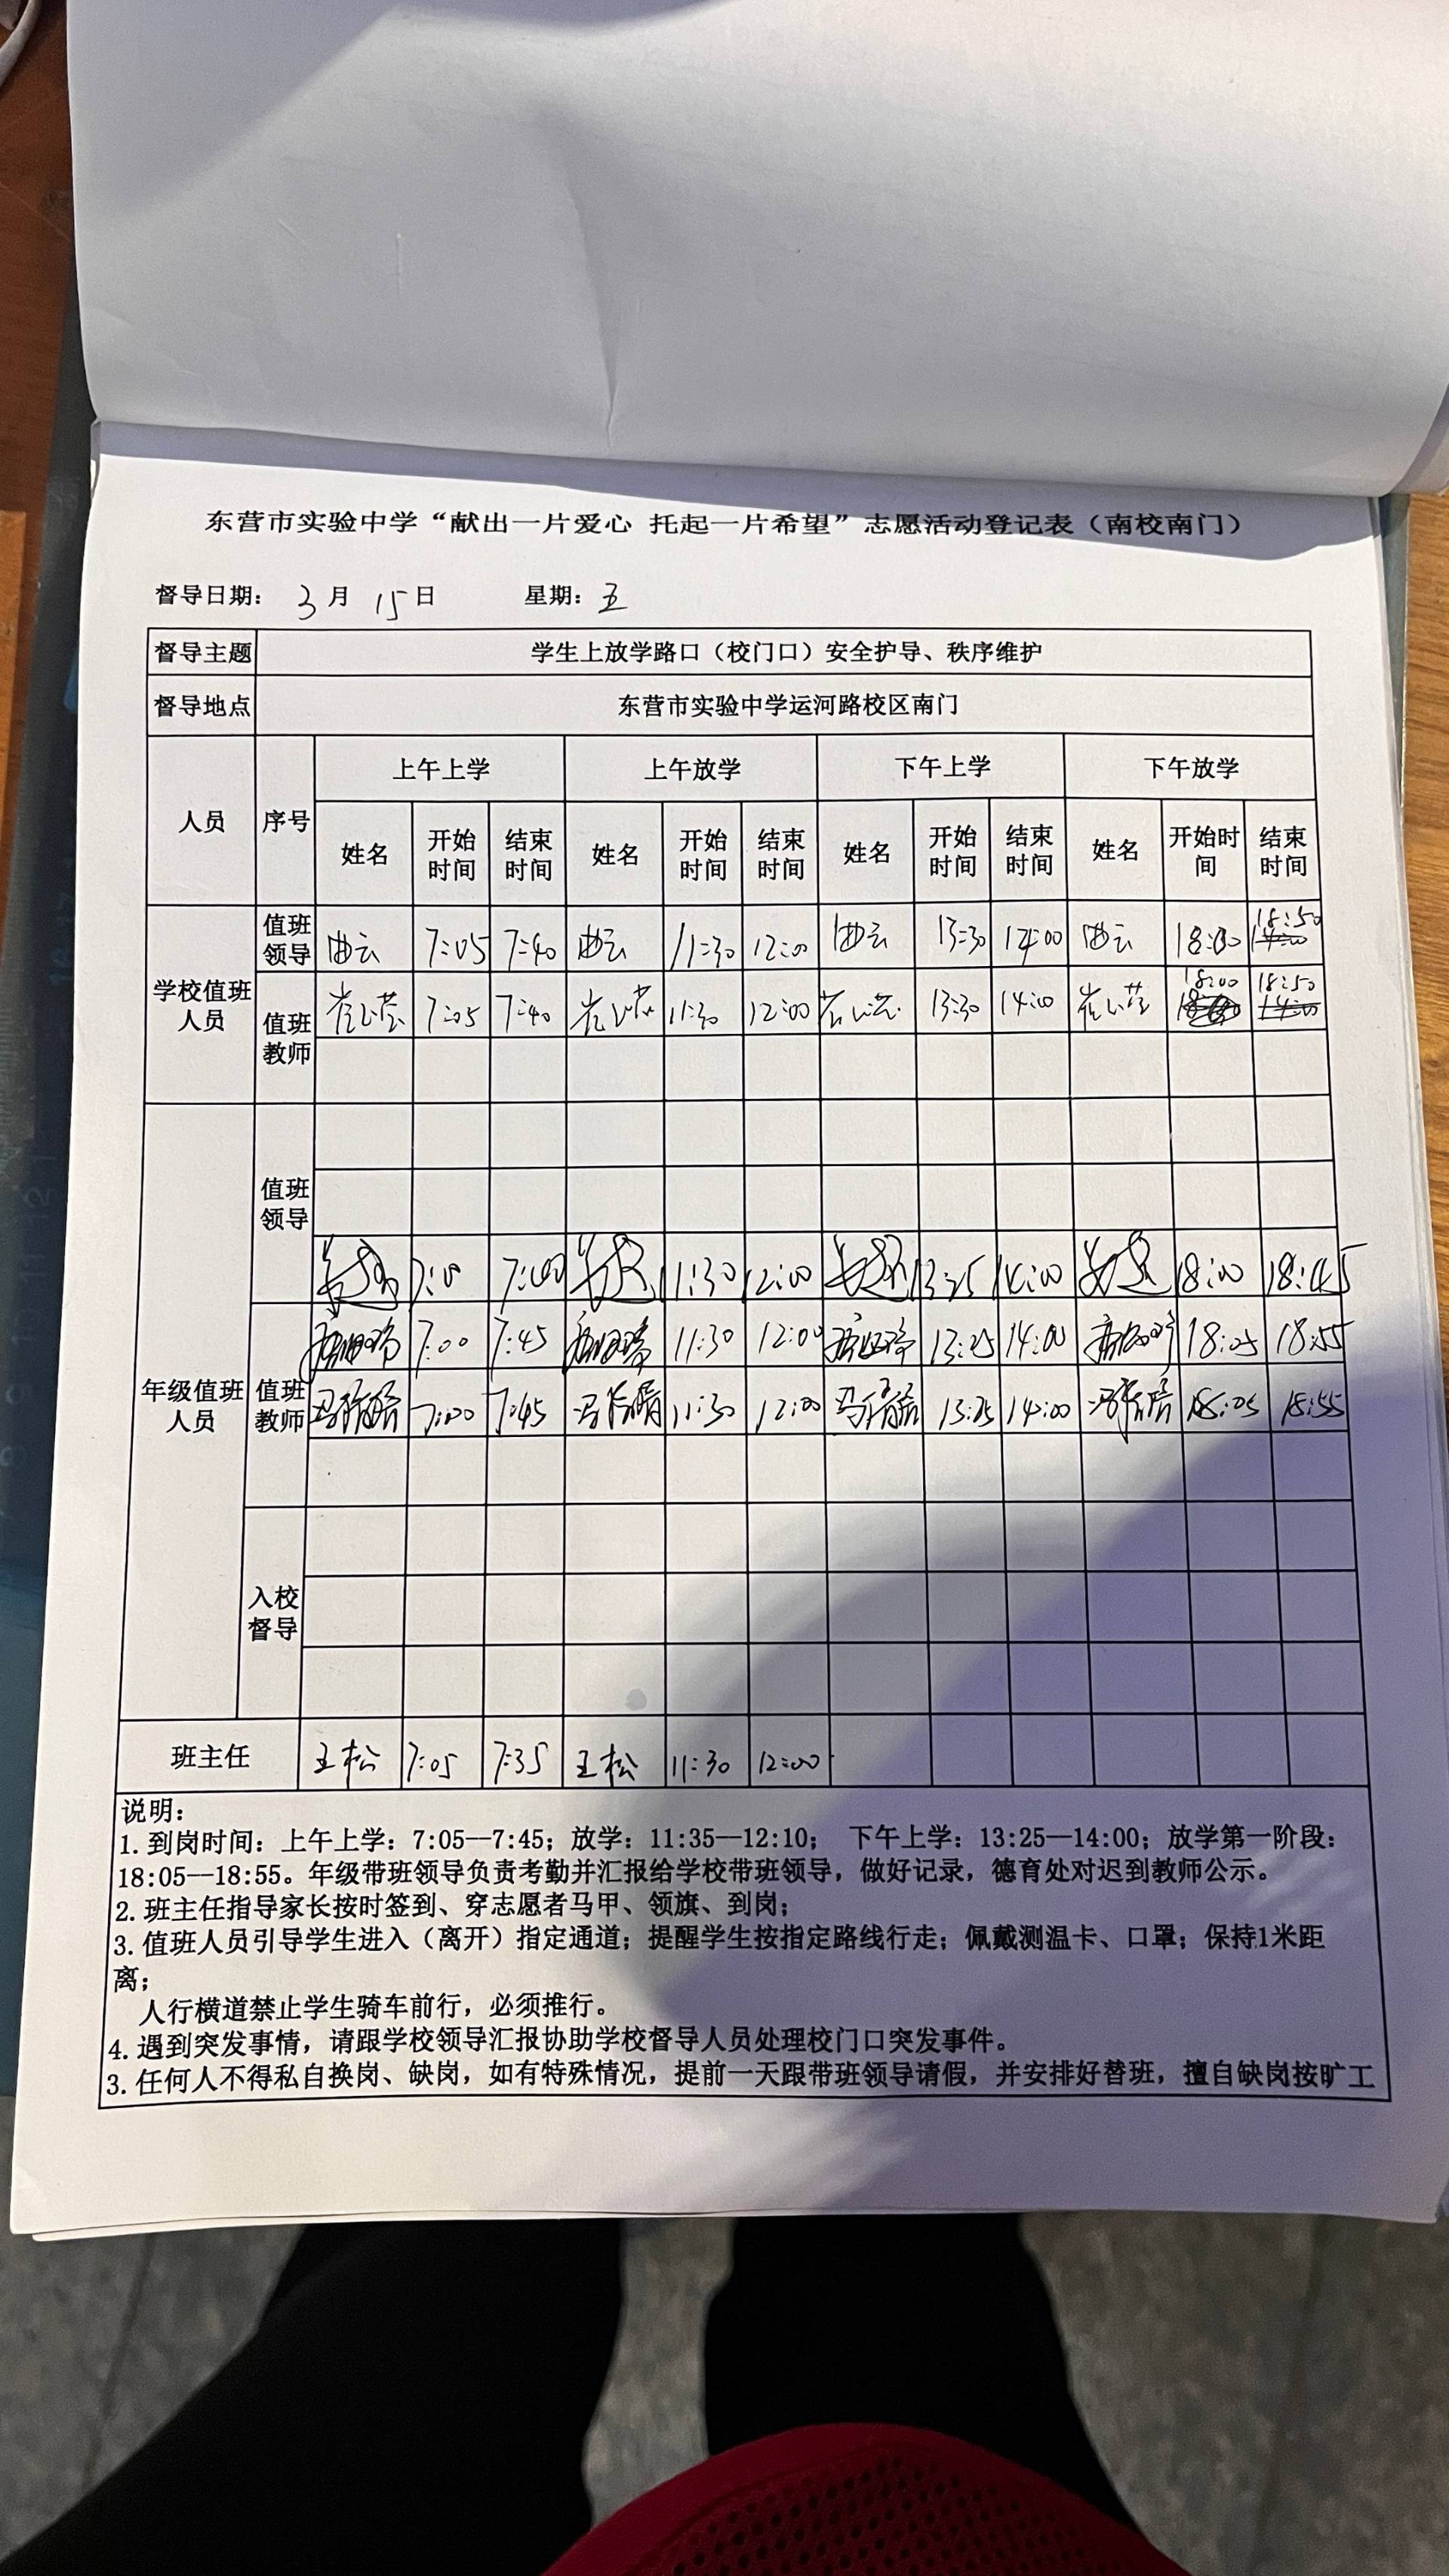 东营市实验中学“献出一片爱心 托起一片希望”志愿活动登记表（南校南门）
督导日期： 3 月 15 日 星期：五
督导主题 学生上放学路口（校门口）安全护导、秩序维护
督导地点 东营市实验中学运河路校区南门
人员 序号 上午上学 上午放学 下午上学 下午放学
姓名 开始时间 结束时间 姓名 开始时间 结束时间 姓名 开始时间 结束时间 姓名 开始时间 结束时间
学校值班人员
值班领导 曲云 7:05 7:40 曲云 11:30 12:00 曲云 13:30 14:00 曲云 18:00 18:50
值班教师 7:05 7:40 11:30 12:00 13:30 14:00 18:00 18:50
年级值班人员
值班领导 11:30 12:00 13:25 14:00 18:00 18:45
值班教师 7:00 7:45 11:30 12:00 13:25 14:00 18:25 18:55
7:00 7:45 11:30 12:00 13:25 14:00 18:05 18:55
入校督导
班主任 王松 7:05 7:35 王松 11:30 12:00
说明：
1. 到岗时间：上午上学：7:05--7:45；放学：11:35--12:10； 下午上学：13:25--14:00；放学第一阶段：
18:05--18:55。年级带班领导负责考勤并汇报给学校带班领导，做好记录，德育处对迟到教师公示。
2. 班主任指导家长按时签到、穿志愿者马甲、领旗、到岗；
3. 值班人员引导学生进入（离开）指定通道；提醒学生按指定路线行走；佩戴测温卡、口罩；保持1米距
离；
人行横道禁止学生骑车前行，必须推行。
4. 遇到突发事情，请跟学校领导汇报协助学校督导人员处理校门口突发事件。
3. 任何人不得私自换岗、缺岗，如有特殊情况，提前一天跟带班领导请假，并安排好替班，擅自缺岗按旷工